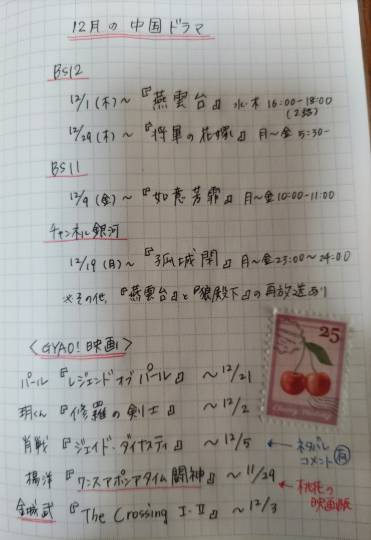 12月の中国ドラマ
BS12
12/1(木)〜『燕雲台』水・木 16:00-18:00
(2話)
12/29(木)〜『将軍の花嫁』月〜金 5:30-
BS11
12/9(金)〜『如意芳霏』月〜金10:00-11:00
チャンネル銀河
12/19(月)〜『孤城閉』月〜金23:00〜24:00
※その他、『燕雲台』と『狼殿下』の再放送あり
〈GYAO!映画〉
パール『レジェンドオブパール』〜12/21
玥くん『修羅の剣士』〜12/2
肖戦『ジェイド・ダイナスティ』〜12/5 ← ネタバレ
コメント 有
楊洋『ワンスアポンアタイム闘神』〜11/29
← 桃花の
映画版
金城武『The Crossing I・II』〜12/3
25
Cherry